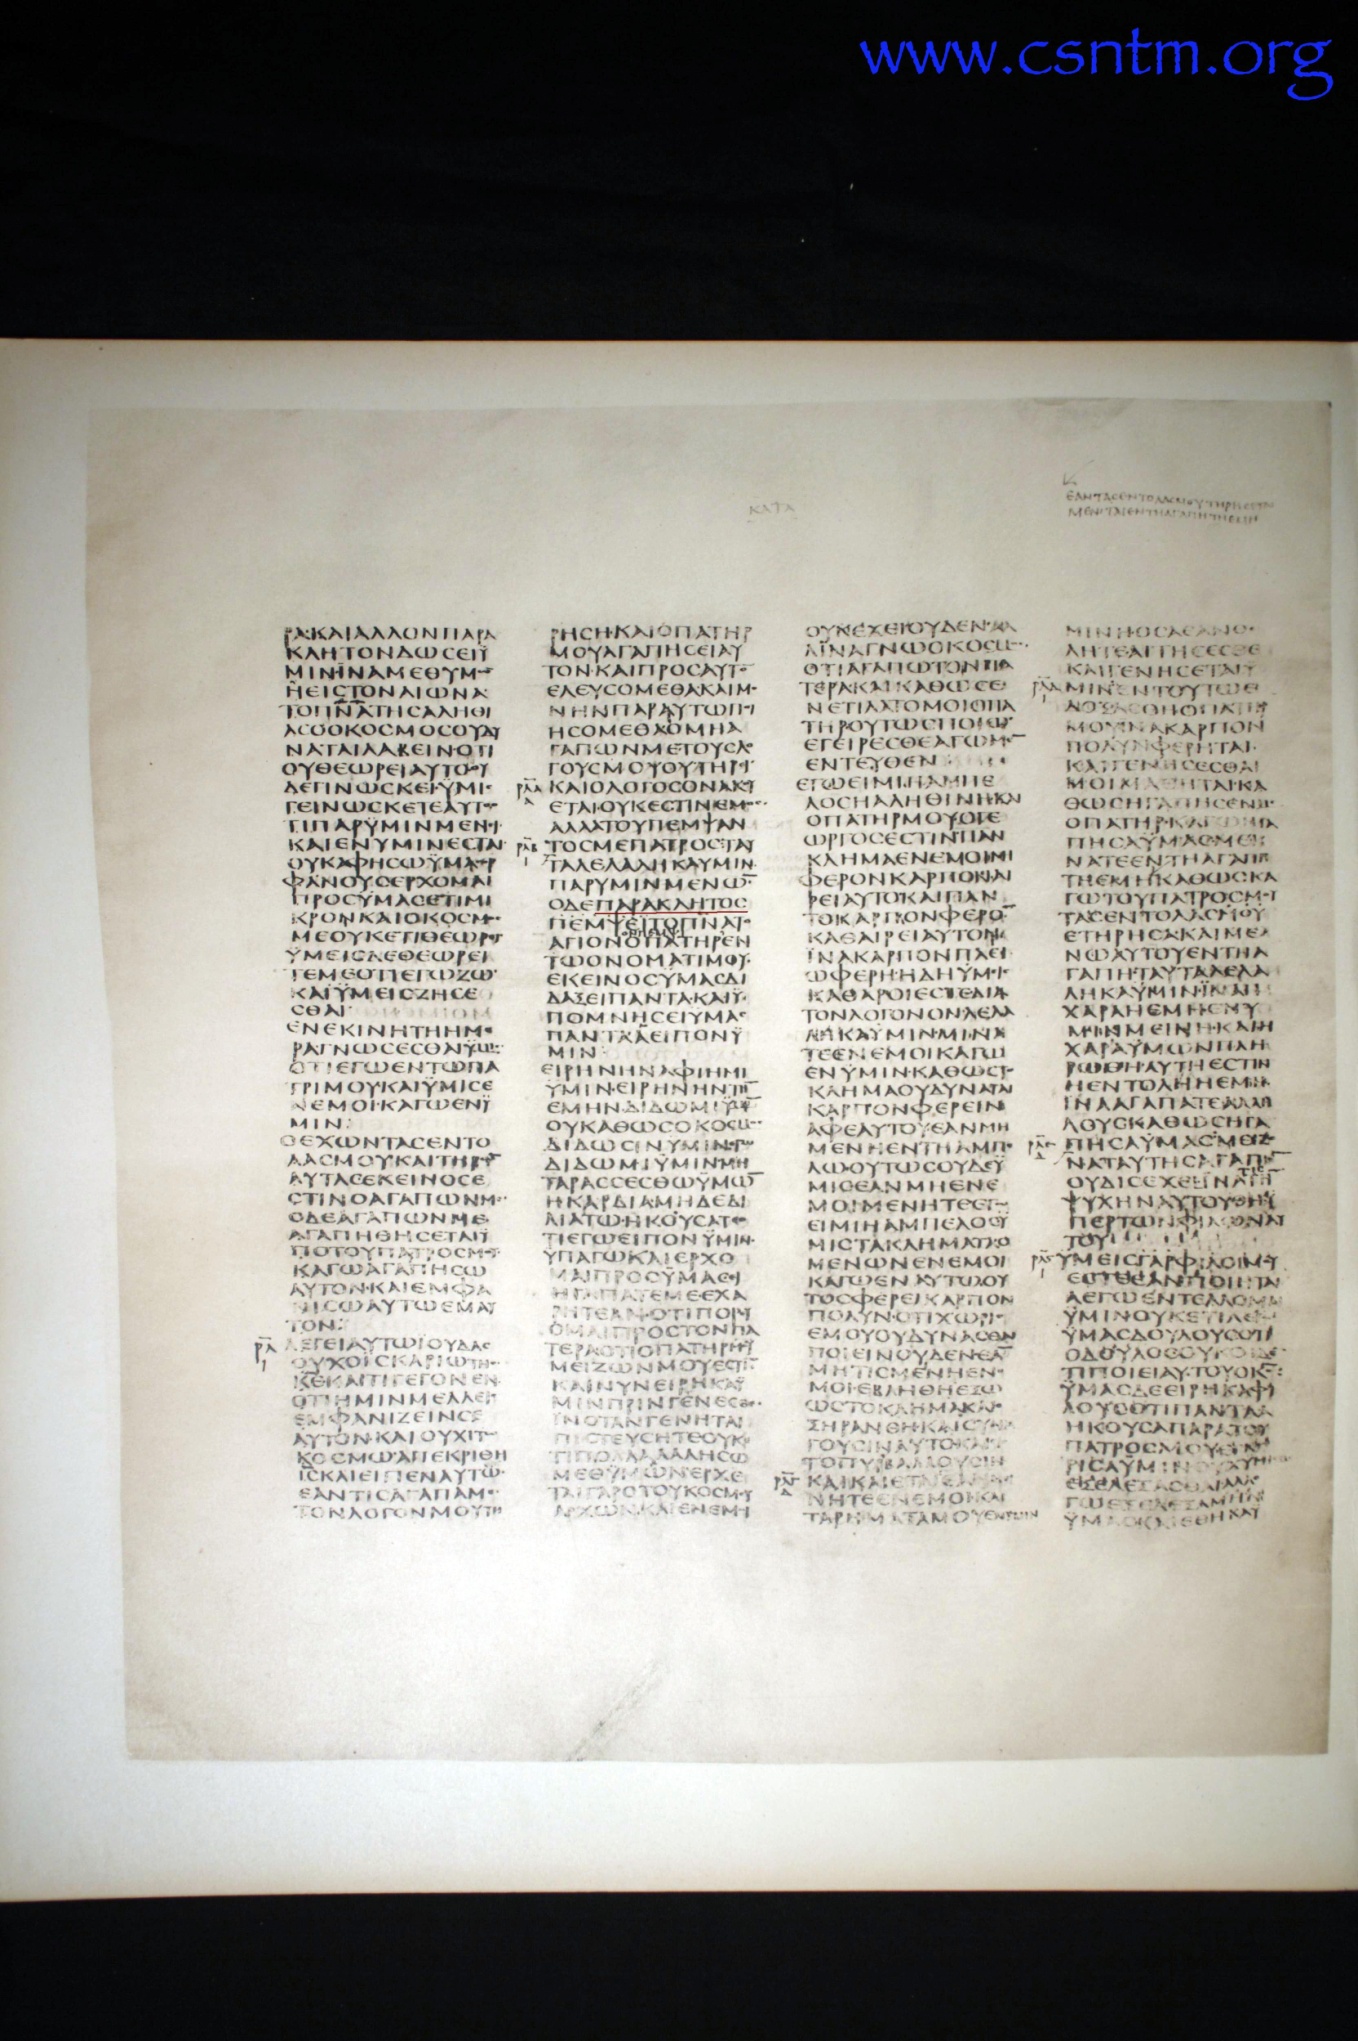 www.csntm.org
ΚΑΤΑ
ΕΑΝΤΑϹΕΝΤΟΛΑϹΜΟΥΤΗΡΗϹΗΤΑΙ
ΜΕΝΙΤΑΙΕΝΤΗΑΓΑΠΗΤΗΕΜΗ
ΡΑ·ΚΑΙΑΛΛΟΝΠΑΡΑ
ΚΛΗΤΟΝΔΩϹΕΙΫ
ΜΙΝΪΝΑΜΕΘΥΜ
ΗΕΙϹΤΟΝΑΙΩΝΑ
ΤΟΠΝΑΤΗϹΑΛΗΘΙ
ΑϹΟΟΚΟϹΜΟϹΟΥΔΥ
ΝΑΤΑΙΛΑΒΕΙΝΟΤΙ
ΟΥΘΕΩΡΕΙΑΥΤΟΟΥ
ΔΕΓΙΝΩϹΚΕΙΫΜΙ
ΓΕΙΝΩϹΚΕΤΕΑΥΤ
ΤΙΠΑΡΫΜΙΝΜΕΝΙ
ΚΑΙΕΝΥΜΙΝΕϹΤΑΙ
ΟΥΚΑΦΗϹΩΫΜΑΟΡ
ΦΑΝΟΥϹΕΡΧΟΜΑΙ
ΠΡΟϹΫΜΑϹΕΤΙΜΙ
ΚΡΟΝΚΑΙΟΚΟϹΜ
ΜΕΟΥΚΕΤΙΘΕΩΡΙ
ΫΜΕΙϹΔΕΘΕΩΡΕΙ
ΤΕΜΕΟΤΙΕΓΩΖΩ
ΚΑΙΫΜΕΙϹΖΗϹΕ
ϹΘΑΙ
ΕΝΕΚΙΝΗΤΗΗΜ
ΡΑΓΝΩϹΕϹΘΑΙΫΜΙϹ
ΟΤΙΕΓΩΕΝΤΩΠΑ
ΤΡΙΜΟΥΚΑΙΫΜΙϹΕ
ΝΕΜΟΙ·ΚΑΓΩΕΝΫ
ΜΙΝ·
ΟΕΧΩΝΤΑϹΕΝΤΟ
ΛΑϹΜΟΥΚΑΙΤΗΡΩ
ΑΥΤΑϹΕΚΕΙΝΟϹΕ
ϹΤΙΝΟΑΓΑΠΩΝΜ
ΟΔΕΑΓΑΠΩΝΜΕ
ΑΓΑΠΗΘΗϹΕΤΑΙΫ
ΠΟΤΟΥΠΑΤΡΟϹΜ
ΚΑΓΩΑΓΑΠΗϹΩ
ΑΥΤΟΝ·ΚΑΙΕΜΦΑ
ΝΙϹΩΑΥΤΩΕΜΑΥ
ΤΟΝ·
ΛΕΓΕΙΑΥΤΩΪΟΥΔΑϹ
ΟΥΧΟΪϹΚΑΡΙΩΤΗϹ
ΚΕΚΑΙΤΙΓΕΓΟΝΕΝ
ΟΤΙΗΜΙΝΜΕΛΛΕΙϹ
ΕΜΦΑΝΙΖΕΙΝϹΕ
ΑΥΤΟΝ·ΚΑΙΟΥΧΙΤ
ΚΟϹΜΩΑΠΕΚΡΙΘΗ
ΙϹΚΑΙΕΙΠΕΝΑΥΤΩ·
ΕΑΝΤΙϹΑΓΑΠΑΜ
ΤΟΝΛΟΓΟΝΜΟΥΤΗ
ΡΗϹΗ·ΚΑΙΟΠΑΤΗΡ
ΜΟΥΑΓΑΠΗϹΕΙΑΥ
ΤΟΝ·ΚΑΙΠΡΟϹΑΥΤ
ΕΛΕΥϹΟΜΕΘΑΚΑΙΜ
ΝΗΝΠΑΡΑΥΤΩΠΙ
ΗϹΟΜΕΘΑΟΜΗΑ
ΓΑΠΩΝΜΕΤΟΥϹΛ
ΓΟΥϹΜΟΥΟΥΤΗΡΙ
ΚΑΙΟΛΟΓΟϹΟΝΑΚΥ
ΕΤΑΙΟΥΚΕϹΤΙΝΕΜ
ΑΛΛΑΤΟΥΠΕΜΨΑΝ
ΤΟϹΜΕΠΑΤΡΟϹΤΑΥ
ΤΑΛΕΛΑΛΗΚΑΥΜΙΝ
ΠΑΡΥΜΙΝΜΕΝΩ
ΟΔΕΠΑΡΑΚΛΗΤΟϹ
ΠΕΜΨΕΙΤΟΠΝΑΙ
ΑΓΙΟΝΟΠΑΤΗΡΕΝ
ΤΩΟΝΟΜΑΤΙΜΟΥ
ΕΚΕΙΝΟϹΫΜΑϹΔΙ
ΔΑΞΕΙΠΑΝΤΑ·ΚΑΙΫ
ΠΟΜΝΗϹΕΙΥΜΑϹ
ΠΑΝΤΑΑΕΙΠΟΝΫ
ΜΙΝ
ΕΙΡΗΝΗΝΑΦΙΗΜΙ
ΥΜΙΝ·ΕΙΡΗΝΗΝΤΗ
ΕΜΗΝΔΙΔΩΜΙΫΜΙ
ΟΥΚΑΘΩϹΟΚΟϹΜ
ΔΙΔΩϹΙΝΥΜΙΝΓΩ
ΔΙΔΩΜΙΫΜΙΝΜΗ
ΤΑΡΑϹϹΕϹΘΩΫΜΩ
ΗΚΑΡΔΙΑΜΗΔΕΔΙ
ΛΙΑΤΩ·ΗΚΟΥϹΑΤ
ΤΙΕΓΩΕΙΠΟΝΫΜΙΝ
ΫΠΑΓΩΚΑΙΕΡΧΟ
ΜΑΙΠΡΟϹΫΜΑϹΙ
ΗΓΑΠΑΤΕΜΕΕΧΑ
ΡΗΤΕΑΝ·ΟΤΙΠΟΡΥ
ΟΜΑΙΠΡΟϹΤΟΝΠΑ
ΤΕΡΑΟΤΙΟΠΑΤΗΡΜΥ
ΜΕΙΖΩΝΜΟΥΕϹΤΙ
ΚΑΙΝΥΝΕΙΡΗΚΑΫ
ΜΙΝΠΡΙΝΓΕΝΕϹΘΑΙ
ΪΝΟΤΑΝΓΕΝΗΤΑΙ
ΠΙϹΤΕΥϹΗΤΕΟΥΚ
ΤΙΠΟΛΛΑΛΑΛΗϹΩ
ΜΕΘΫΜΩΝΕΡΧΕ
ΤΑΙΓΑΡΟΤΟΥΚΟϹΜΥ
ΑΡΧΩΝ·ΚΑΙΕΝΕΜΙ
ΟΥΚΕΧΕΙΟΥΔΕΝ·ΑΛ
ΑΪΝΑΓΝΩΟΚΟϹΜ
ΟΤΙΑΓΑΠΩΤΟΝΠΑ
ΤΕΡΑΚΑΙΚΑΘΩϹΕ
ΝΕΤΙΛΑΤΟΜΟΙΟΠΑ
ΤΗΡΟΥΤΩϹΠΟΙΩ
ΕΓΕΙΡΕϹΘΕΑΓΩΜ
ΕΝΤΕΥΘΕΝ
ΕΓΩΕΙΜΙΗΑΜΠΕ
ΛΟϹΗΑΛΗΘΙΝΗΚΑΙ
ΟΠΑΤΗΡΜΟΥΟΓΕ
ΩΡΓΟϹΕϹΤΙΝΠΑΝ
ΚΛΗΜΑΕΝΕΜΟΙΜΗ
ΦΕΡΟΝΚΑΡΠΟΝΑΙ
ΡΕΙΑΥΤΟΚΑΙΠΑΝ
ΤΟΚΑΡΠΟΝΦΕΡΟ
ΚΑΘΑΙΡΕΙΑΥΤΟ
ΪΝΑΚΑΡΠΟΝΠΛΕΙ
ΩΦΕΡΗ·ΗΔΗΫΜΙ
ΚΑΘΑΡΟΙΕϹΤΕΔΙΑ
ΤΟΝΛΟΓΟΝΟΝΛΕΛΑ
ΛΗΚΑΫΜΙΝ·ΜΙΝΑ
ΤΕΕΝΕΜΟΙΚΑΓΩ
ΕΝΥΜΙΝ·ΚΑΘΩϹΤ
ΚΛΗΜΑΟΥΔΥΝΑΤΑΙ
ΚΑΡΠΟΝΦΕΡΕΙΝ
ΑΦΕΑΥΤΟΥΕΑΝΜΗ
ΜΕΝΗΕΝΤΗΑΜΠ
ΛΩΟΥΤΩϹΟΥΔΕΫ
ΜΙϹΕΑΝΜΗΕΝΕ
ΜΟΙΜΕΝΗΤΕΕΓ
ΕΙΜΙΗΑΜΠΕΛΟϹΫ
ΜΙϹΤΑΚΛΗΜΑΤΑΟ
ΜΕΝΩΝΕΝΕΜΟΙ
ΚΑΓΩΕΝΑΥΤΩΟΥ
ΤΟϹΦΕΡΕΙΚΑΡΠΟΝ
ΠΟΛΥΝ·ΟΤΙΧΩΡΙϹ
ΕΜΟΥΟΥΔΥΝΑϹΘΑΙ
ΠΟΙΕΙΝΟΥΔΕΝΕΑ
ΜΗΤΙϹΜΕΝΗΕΝ
ΜΟΙ·ΕΒΛΗΘΗΕΞΩ
ΩϹΤΟΚΛΗΜΑΚΑΙ
ΞΗΡΑΝΘΗ·ΚΑΙϹΥΝΑ
ΓΟΥϹΙΝΑΥΤΟΚΑΙ
ΤΟΠΥΡΒΑΛΛΟΥϹΙΝ
ΚΑΙΚΑΙΕΤΑΙ
ΝΗΤΕΕΝΕΜΟΙΚΑΙ
ΤΑΡΗΜΑΤΑΜΟΥΕΝΫΜΙΝ
ΜΙΝΗΟϹΑΕΑΝΘΕ
ΛΗΤΕΑΙΤΗϹΕϹΘΕ
ΚΑΙΓΕΝΗϹΕΤΑΙΫ
ΜΙΝΕΝΤΟΥΤΩΕ
ΔΟΞΑϹΘΗΟΠΑΤΗΡ
ΜΟΥΪΝΑΚΑΡΠΟΝ
ΠΟΛΥΝΦΕΡΗΤΑΙ
ΚΑΙΓΕΝΗϹΕϹΘΑΙ
ΜΟΙΜΑΘΗΤΑΙ·ΚΑ
ΘΩϹΗΓΑΠΗϹΕΝΜΕ
ΟΠΑΤΗΡ·ΚΑΓΩΥΜΑ
ΠΗϹΑΫΜΑϹΜΕΙ
ΝΑΤΕΕΝΤΗΑΓΑΠΗ
ΤΗΕΜΗΚΑΘΩϹΚΑ
ΓΩΤΟΥΠΑΤΡΟϹΜ
ΤΑϹΕΝΤΟΛΑϹΜΟΥ
ΕΤΗΡΗϹΑΚΑΙΜΕ
ΝΩΑΥΤΟΥΕΝΤΗΑ
ΓΑΠΗ·ΤΑΥΤΑΛΕΛΑ
ΛΗΚΑΫΜΙΝ·ΪΝΑΗ
ΧΑΡΑΗΕΜΗΕΝΥ
ΜΙΝΜΕΙΝΗ·ΚΑΙΗ
ΧΑΡΑΫΜΩΝΠΛΗ
ΡΩΘΗ·ΑΥΤΗΕϹΤΙΝ
ΗΕΝΤΟΛΗΗΕΜΗ
ΪΝΑΑΓΑΠΑΤΕΑΛΛΗ
ΛΟΥϹΚΑΘΩϹΗΓΑ
ΠΗϹΑΫΜΑϹΜΕΙΖ
ΝΑΤΑΥΤΗϹΑΓΑΠ
ΟΥΔΙϹΕΧΕΙΪΝΑΤΗ
ΨΥΧΗΝΑΥΤΟΥΘΗ
ΠΕΡΤΩΝΦΙΛΩΝΑΥ
ΤΟΥ
ΥΜΕΙϹΓΑΡΦΙΛΟΙΜΥ
ΕϹΤΕΕΑΝΠΟΙΗΤΑΙ
ΑΕΓΩΕΝΤΕΛΛΟΜΑΙ
ΫΜΙΝΟΥΚΕΤΙΛΕΓ
ΫΜΑϹΔΟΥΛΟΥϹΟΤΙ
ΟΔΟΥΛΟϹΟΥΚΟΙΔΕ
ΤΙΠΟΙΕΙΑΥΤΟΥΟΚ
ΫΜΑϹΔΕΕΙΡΗΚΑΦΙ
ΛΟΥϹΟΤΙΠΑΝΤΑΑ
ΗΚΟΥϹΑΠΑΡΑΤΟΥ
ΠΑΤΡΟϹΜΟΥΕΓΝ
ΡΙϹΑΥΜΙΝΟΥΧΥΜΙϹ
ΕΞΕΛΕΞΑϹΘΑΙΑΛΛ
ΓΩΕΞΕΛΕΞΑΜΗΝ
ΫΜΑϹΚΑΙΕΘΗΚΑΫ